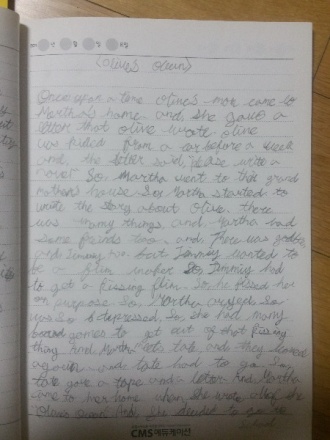 Once upon a time olive's mom came to
Martha's home and she gave a
letter that olive wrote olive
was killed from a car before a week
and the letter said "please write a
novel" So, Martha went to their grand
mothers house. So Martha started to
write the story about Olive. There
was many things, and Martha had
some friends too. and There was
and Jimmy had but Jimmy wanted to
be a film maker So Jimmy had
to get a kissing film. So he kissed her
on purpose So, Martha So
was So depressed, So she had many
games to get out of that kissing
thing And Martha tate and they kissed
again and tate had to go. So
tate gave a tape and a letter And Martha
came to her home when she wrote
And she decided to
School
CMS에듀케이션